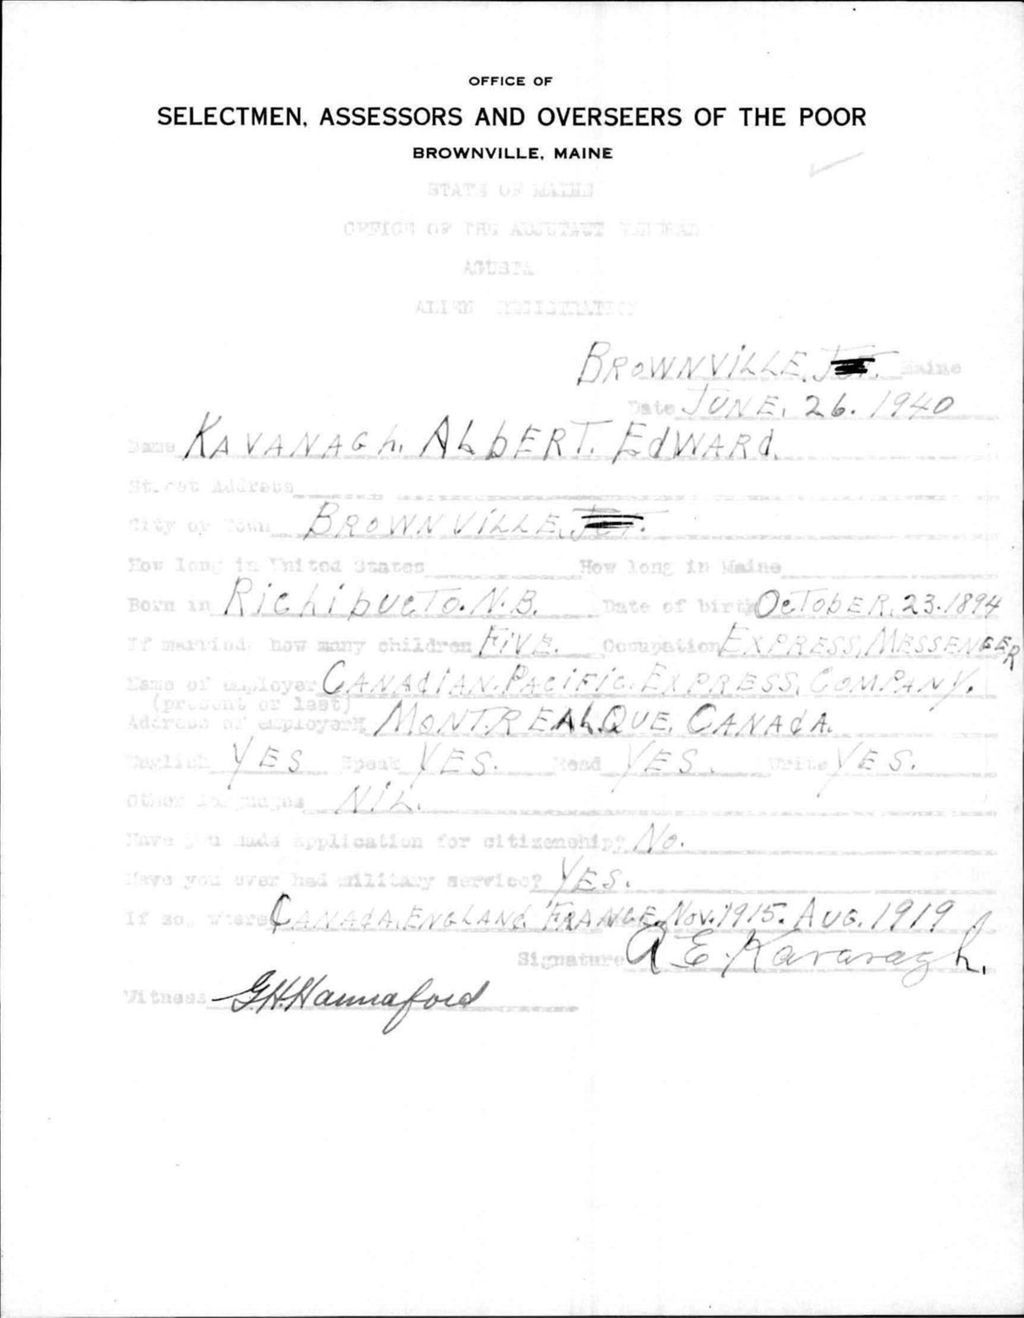 OFFICE OF
SELECTMEN, ASSESSORS AND OVERSEERS OF THE POOR
BROWNVILLE, MAINE
STATE OF MAINE
OFFICE OF THE ADJUTANT GENERAL
AGUSTA
ALIEN REGISTRATION
BROWNVILLE, JCT. Maine
Date JUNE. 26. 1940
Name KAVANAGh, ALbERT. EdWARd.
Street Address
City or Town BROWNVILLE, JCT.
How long in United States How long in Maine
Born in RichibucTo. N.B. Date of birth OcTobER. 23. 1894
If married, how many children FiVE. Occupation EXPRESS, MESSENGER
Name of employer CANAdIAN. PAciFic. EXPRESS. COMPANY.
(present or last)
Address of employer MONTREAL. QUE. CANAdA.
English YES Speak YES. Read YES. Write YES.
Other languages NIL.
Have you made application for citizenship? No.
Have you ever had military service? YES.
If so, where CANAdA. ENGLANd. FRANCE. Nov. 1915. AUG. 1919
Signature A E. Kavanagh.
Witness G.H. Hannaford